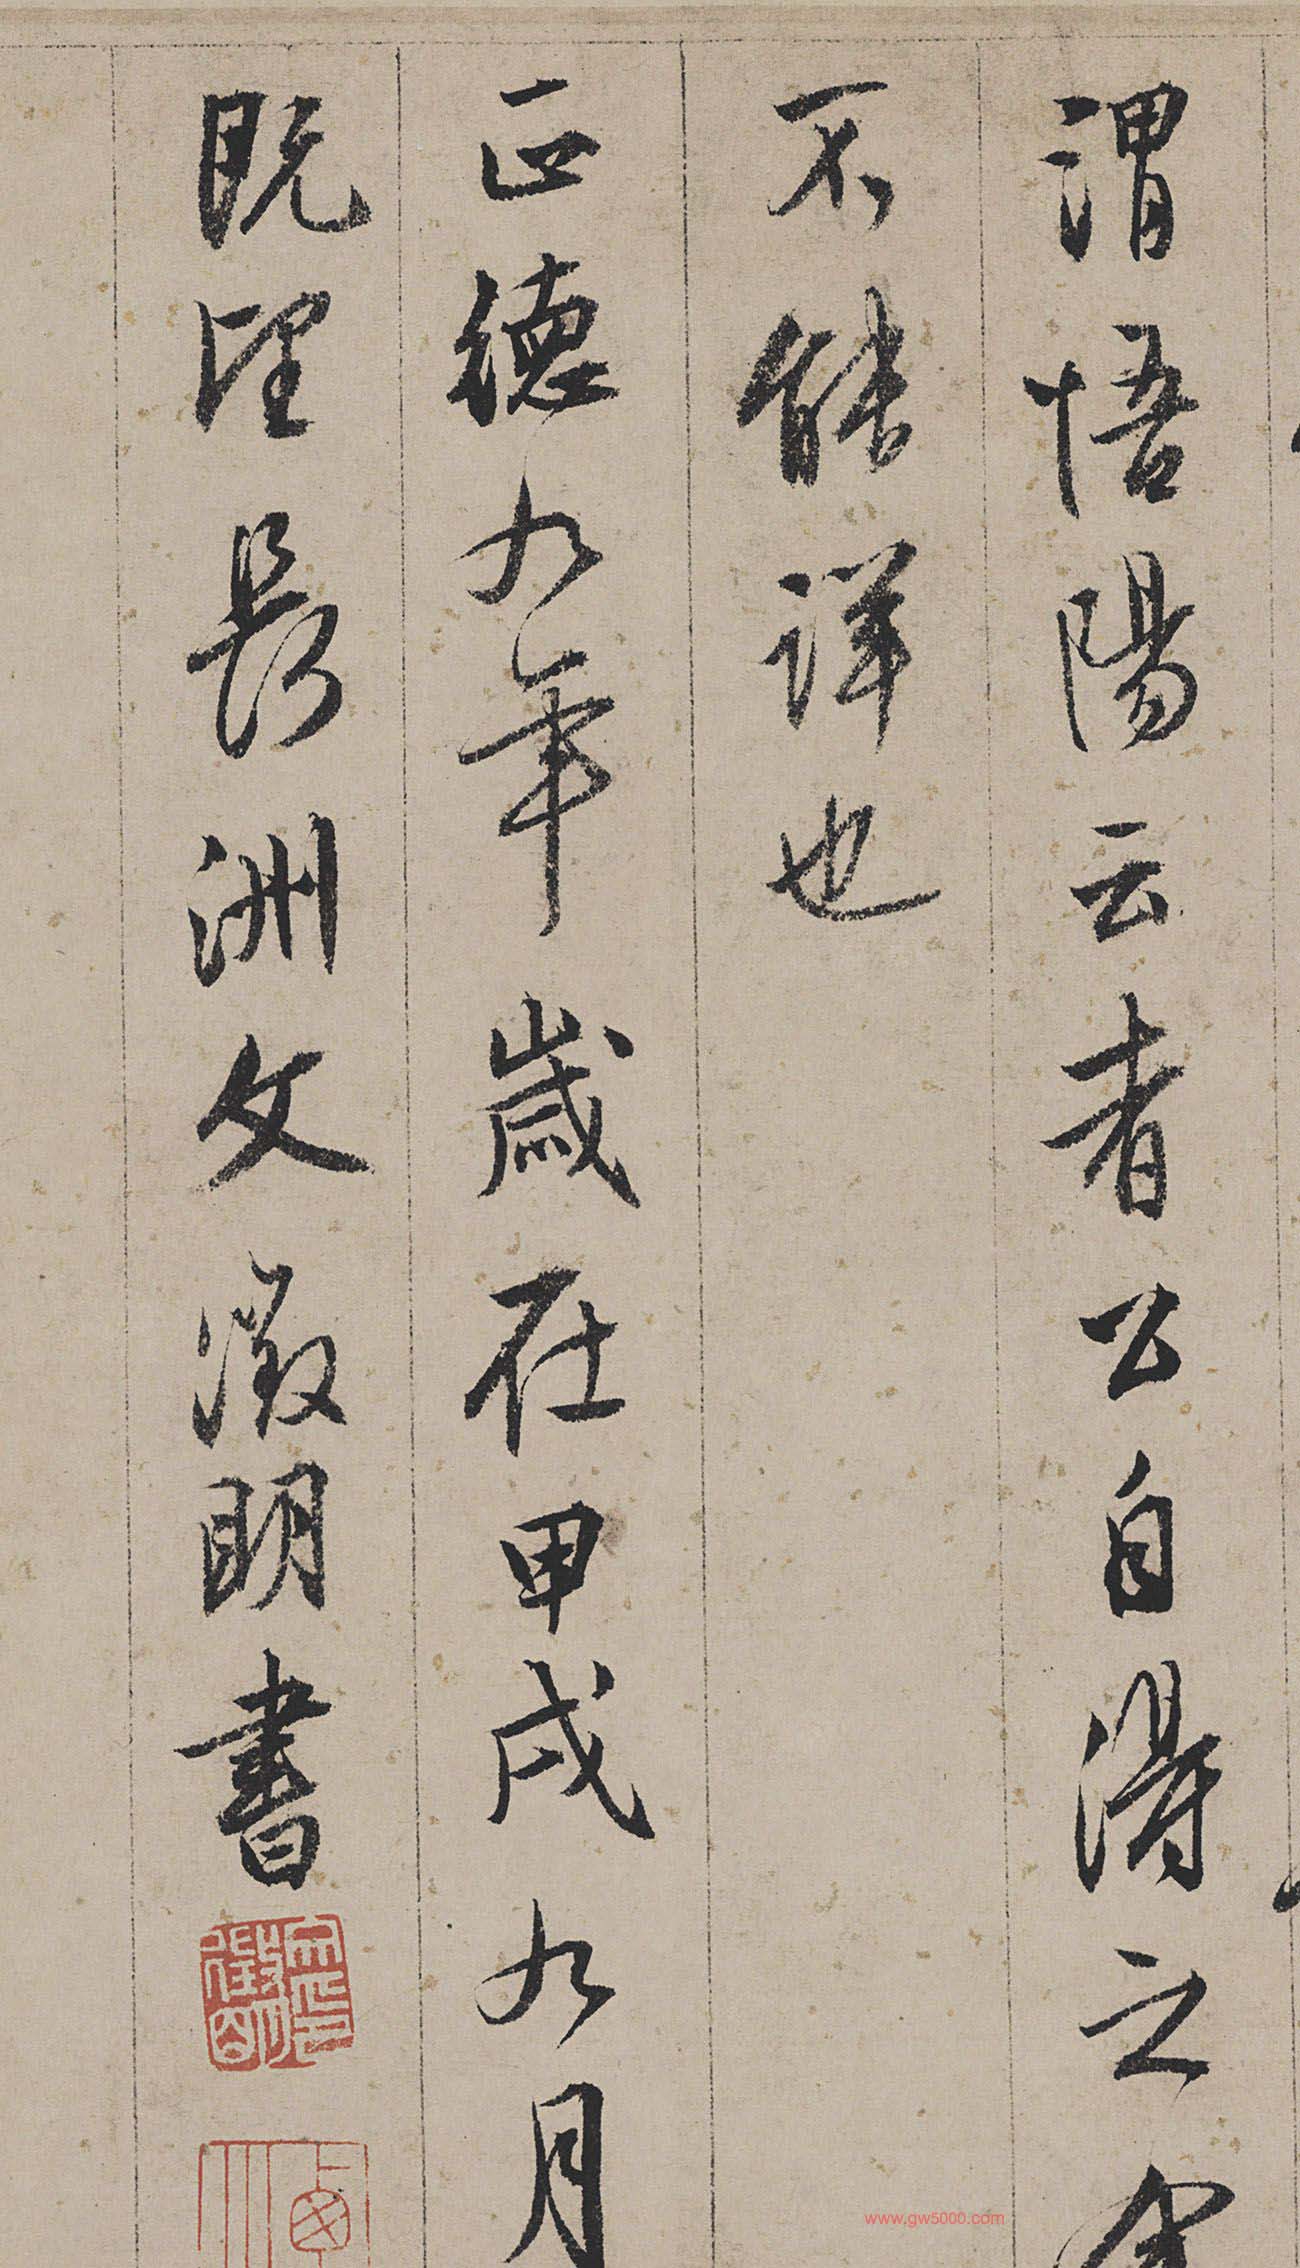 渭悟陽云者公自得之
不能詳也
正德九年歲在甲戌九月
既望長洲文徵明書
徵明
www.gw5000.com